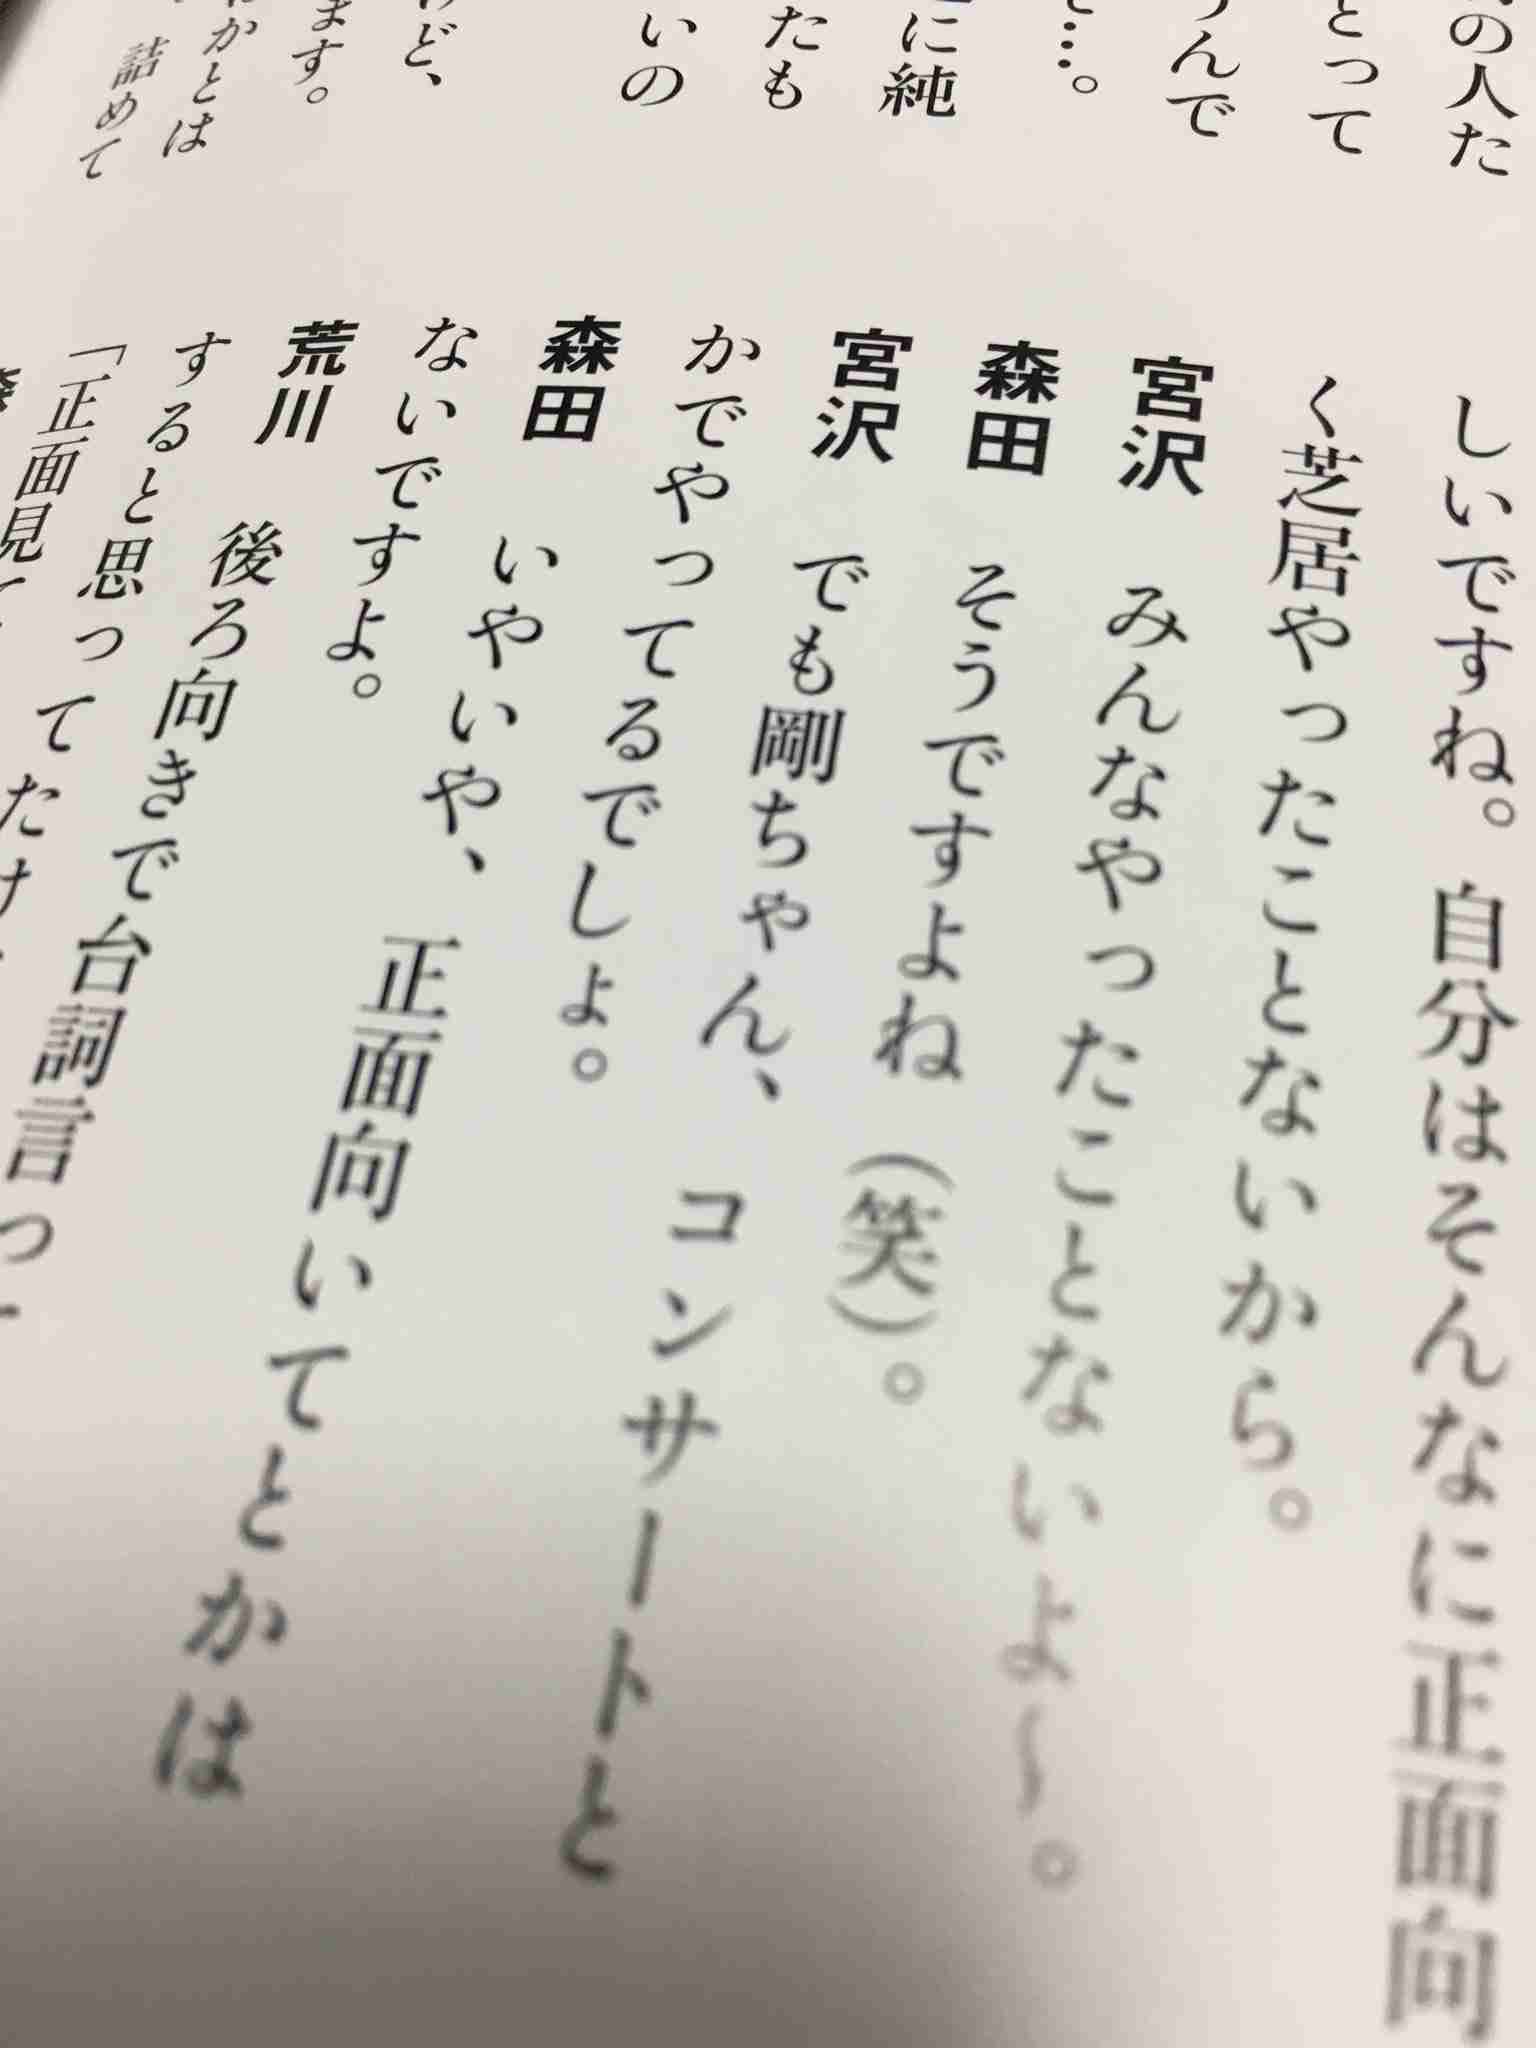 の人た
とって
うんで
…。
に純
たも
いの
けど、
ます。
かとは
詰めて
しいですね。自分はそんなに正面向
く芝居やったことないから。
宮沢　みんなやったことないよ〜。
森田　そうですよね（笑）。
宮沢　でも剛ちゃん、コンサートと
かでやってるでしょ。
森田　いやいや、正面向いてとかは
ないですよ。
荒川　後ろ向きで台詞言っ
すると思ってたけ
「正面見て